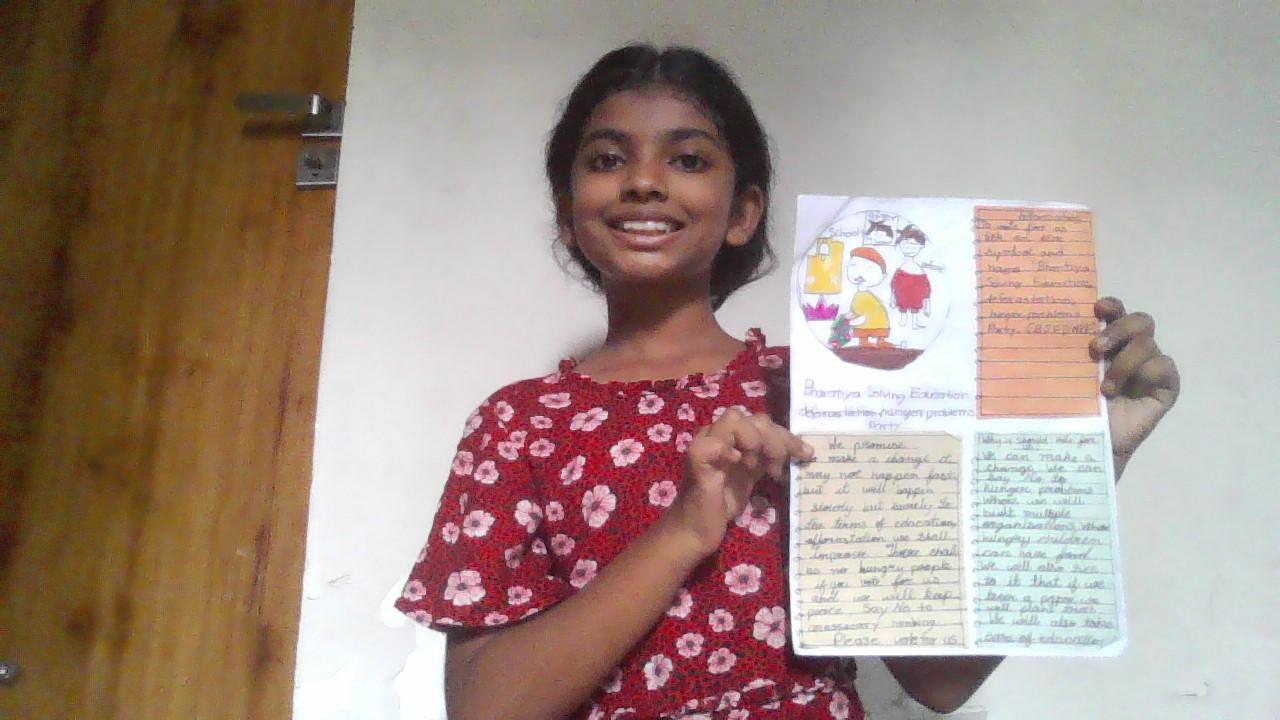 School
Bharatiya Solving Education
hunger problems
Party
to vote for us
symbol and
Name Bhartiya
Solving Education
hunger problems
Party.
We promise
to make a change it
may not happen fast
but it will happen
slowly but surely In
the terms of education,
afforestation we shall
improve. There shall
be no hungry people
if you vote for us
and we will keep
peace Say No to
Please vote for us
Why u should vote for
us
We can make a
change we can
say No to
hunger problems
Where we will
built multiple
organisations where
hungry children
can have food
We will also see
to it that if we
a paper we
will plant
We will also take
care of education